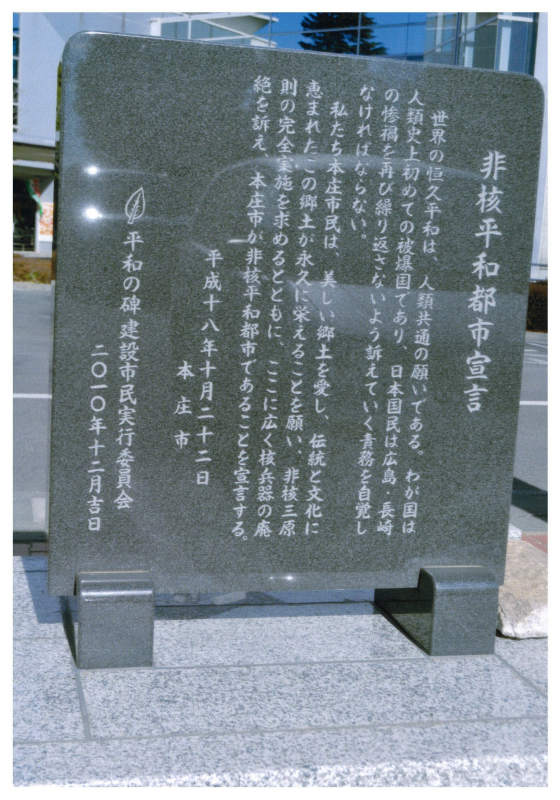 非核平和都市宣言
世界の恒久平和は、人類共通の願いである。わが国は
人類史上初めての被爆国であり、日本国民は広島・長崎
の惨禍を再び繰り返さないよう訴えていく責務を自覚し
なければならない。
私たち本庄市民は、美しい郷土を愛し、伝統と文化に
恵まれたこの郷土が永久に栄えることを願い、非核三原
則の完全実施を求めるとともに、ここに広く核兵器の廃
絶を訴え、本庄市が非核平和都市であることを宣言する。
平成十八年十月二十二日
本庄市
平和の碑建設市民実行委員会
二〇一〇年十二月吉日